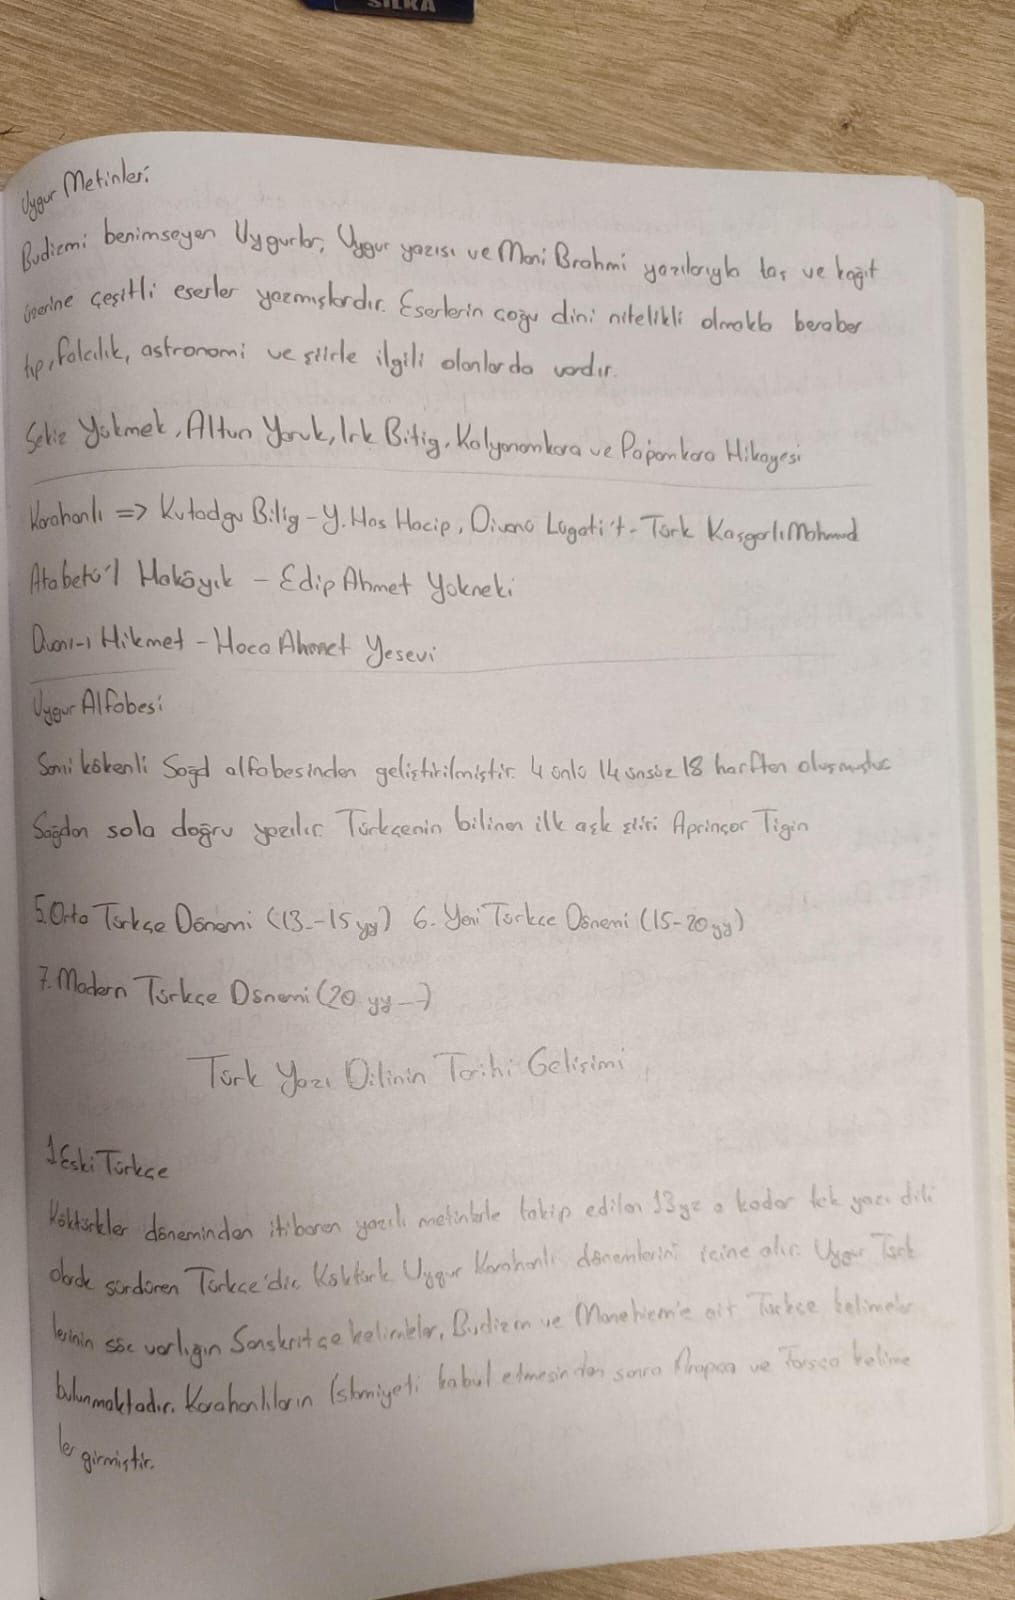 SILKA
Uygur Metinleri
Budizmi benimseyen Uygurlar, Uygur yazısı ve Mani Brahmi yazılarıyla taş ve kağıt
üzerine çeşitli eserler yazmışlardır. Eserlerin çoğu dini nitelikli olmakla beraber
tıp, falcılık, astronomi ve şiirle ilgili olanlarda vardır.
Sekiz Yükmek, Altun Yaruk, Irk Bitig, Kalyanamkara ve Papamkara Hikayesi
Karahanlı => Kutadgu Bilig - Y. Has Hacip, Divanü Lügati't - Türk Kaşgarlı Mahmud
Atabetü'l Hakâyık - Edip Ahmet Yükneki
Divan-ı Hikmet - Hoca Ahmet Yesevi
Uygur Alfabesi
Sami kökenli Soğd alfabesinden geliştirilmiştir. 4 ünlü 14 ünsüz 18 harften oluşmuştur
Sağdan sola doğru yazılır. Türkçenin bilinen ilk aşk şiiri Aprinçor Tigin
5. Orta Türkçe Dönemi (13.-15 yy) 6. Yeni Türkçe Dönemi (15-20 yy)
7. Modern Türkçe Dönemi (20 yy —)
Türk Yazı Dilinin Tarihi Gelişimi
1 Eski Türkçe
Köktürkler döneminden itibaren yazılı metinlerle takip edilen 13 yz a kadar tek yazı dili
olarak sürdüren Türkçe'dir. Köktürk Uygur Karahanlı dönemlerini içine alır. Uygur Türk
lerinin söz varlığın Sanskritçe kelimeler, Budizm ve Maneheizm'e ait Türkçe kelimeler
bulunmaktadır. Karahanlıların İslamiyeti kabul etmesinden sonra Arapça ve Farsça kelime
ler girmiştir.